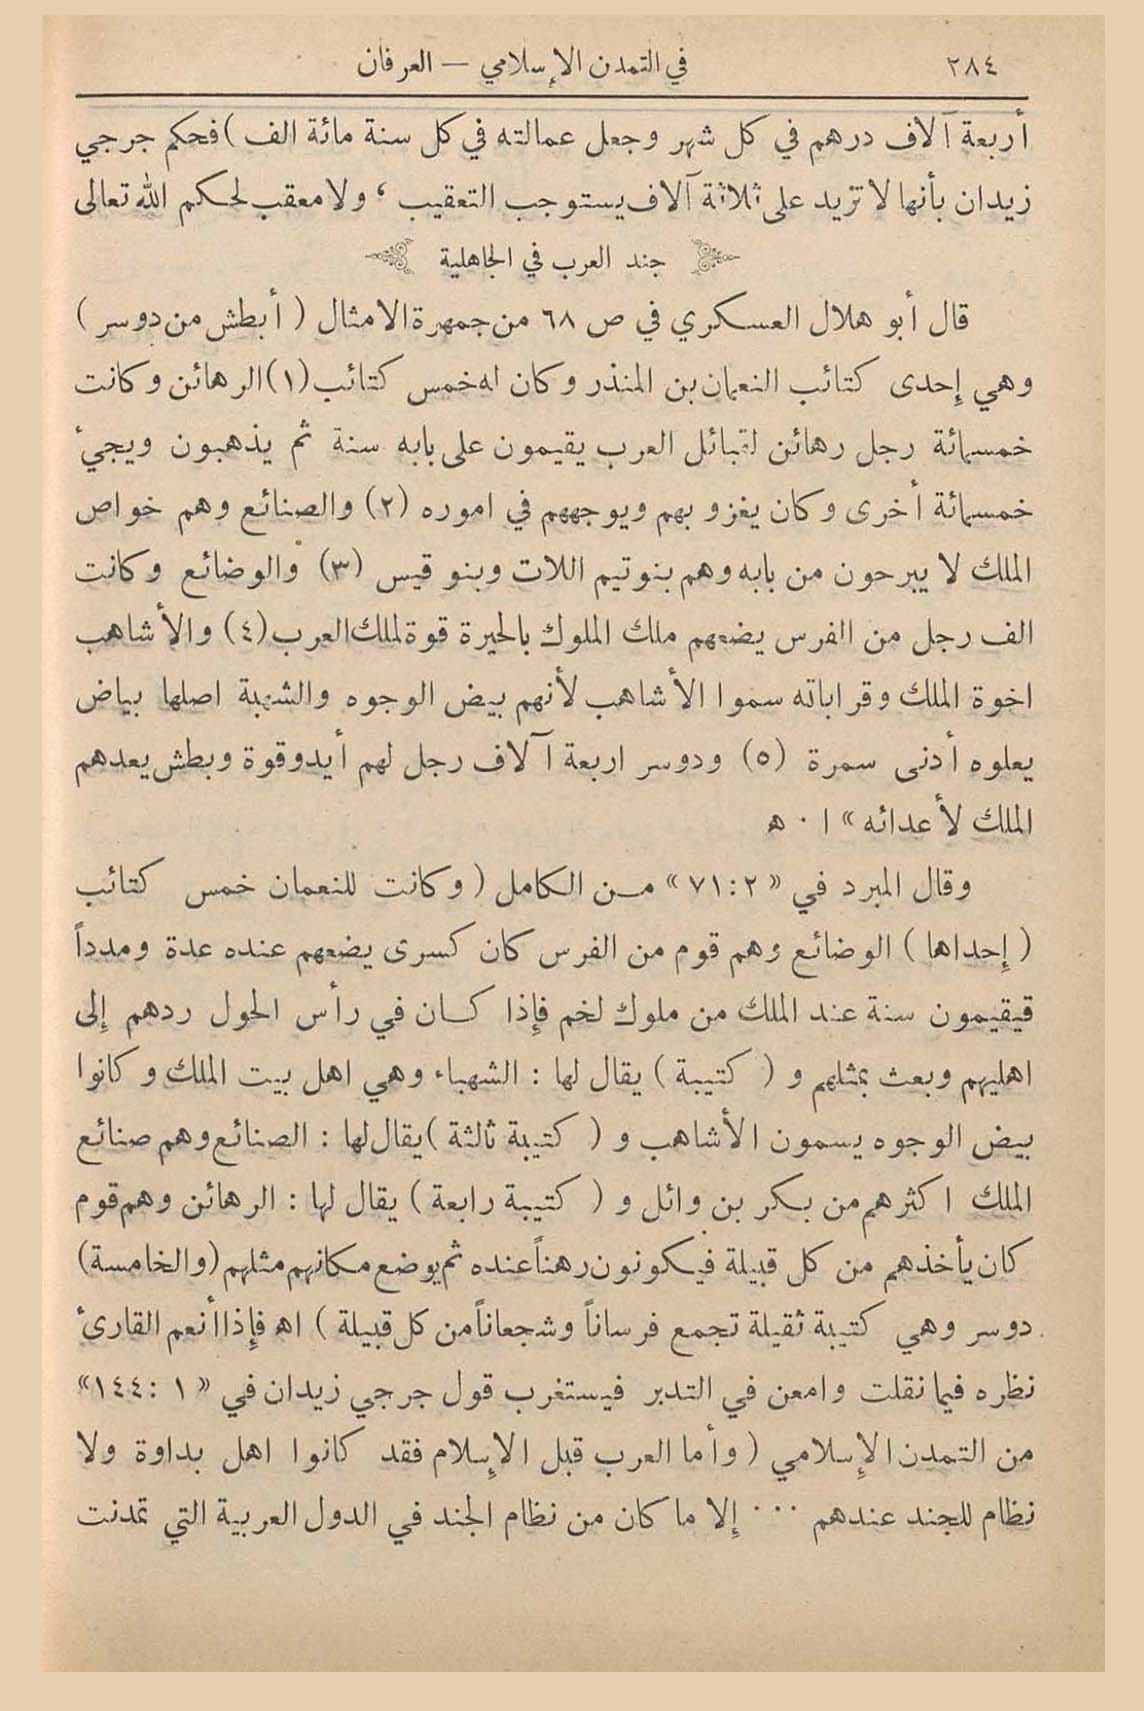 ٢٨٤ في التمدن الإسلامي — العرفان
أربعة آلاف درهم في كل شهر وجعل عمالته في كل سنة مائة الف ) فحكم جرجي
زيدان بأنها لا تزيد على ثلاثة آلاف يستوجب التعقيب ، ولا معقب لحكم الله تعالى
جند العرب في الجاهلية
قال أبو هلال العسكري في ص ٦٨ من جمهرة الامثال ( أبطش من دوسر )
وهي إحدى كتائب النعمان بن المنذر وكان له خمس كتائب (١) الرهائن وكانت
خمسمائة رجل رهائن لقبائل العرب يقيمون على بابه سنة ثم يذهبون ويجيء
خمسمائة أخرى وكان يغزو بهم ويوجههم في اموره (٢) والصنائع وهم خواص
الملك لا يبرحون من بابه وهم بنو تيم اللات وبنو قيس (٣) والوضائع وكانت
الف رجل من الفرس يضعهم ملك الملوك بالحيرة قوة لملك العرب (٤) والأشاهب
اخوة الملك وقراباته سموا الأشاهب لأنهم بيض الوجوه والشهبة اصلها بياض
يعلوه أدنى سمرة (٥) ودوسر اربعة آلاف رجل لهم أيد وقوة وبطش يعدهم
الملك لأعدائه » ا ٠ ه
وقال المبرد في « ٢ : ٧١ » من الكامل ( وكانت للنعمان خمس كتائب
( إحداها ) الوضائع وهم قوم من الفرس كان كسرى يضعهم عنده عدة ومدداً
قيقيمون سنة عند الملك من ملوك لخم فإذا كان في رأس الحول ردهم إلى
اهليهم وبعث بمثلهم و ( كتيبة ) يقال لها : الشهباء وهي اهل بيت الملك وكانوا
بيض الوجوه يسمون الأشاهب و ( كتيبة ثالثة ) يقال لها : الصنائع وهم صنائع
الملك اكثرهم من بكر بن وائل و ( كتيبة رابعة ) يقال لها : الرهائن وهم قوم
كان يأخذهم من كل قبيلة فيكونون رهناً عنده ثم يوضع مكانهم مثلهم ( والخامسة )
دوسر وهي كتيبة ثقيلة تجمع فرساناً وشجعاناً من كل قبيلة ) اه فإذا أنعم القارىء
نظره فيما نقلت وامعن في التدبر فيستغرب قول جرجي زيدان في « ١ : ١٤٤ »
من التمدن الإسلامي ( وأما العرب قبل الإسلام فقد كانوا اهل بداوة ولا
نظام للجند عندهم ٠٠٠ إلا ما كان من نظام الجند في الدول العربية التي تمدنت